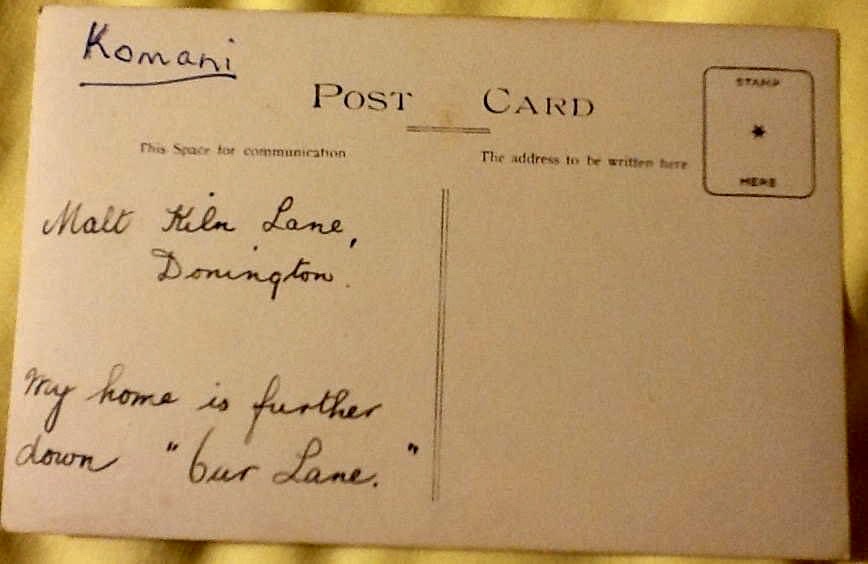 Komani
POST CARD
This Space for communication
The address to be written here
STAMP
HERE
Malt Kiln Lane,
Donington.
My home is further
down "Our Lane."